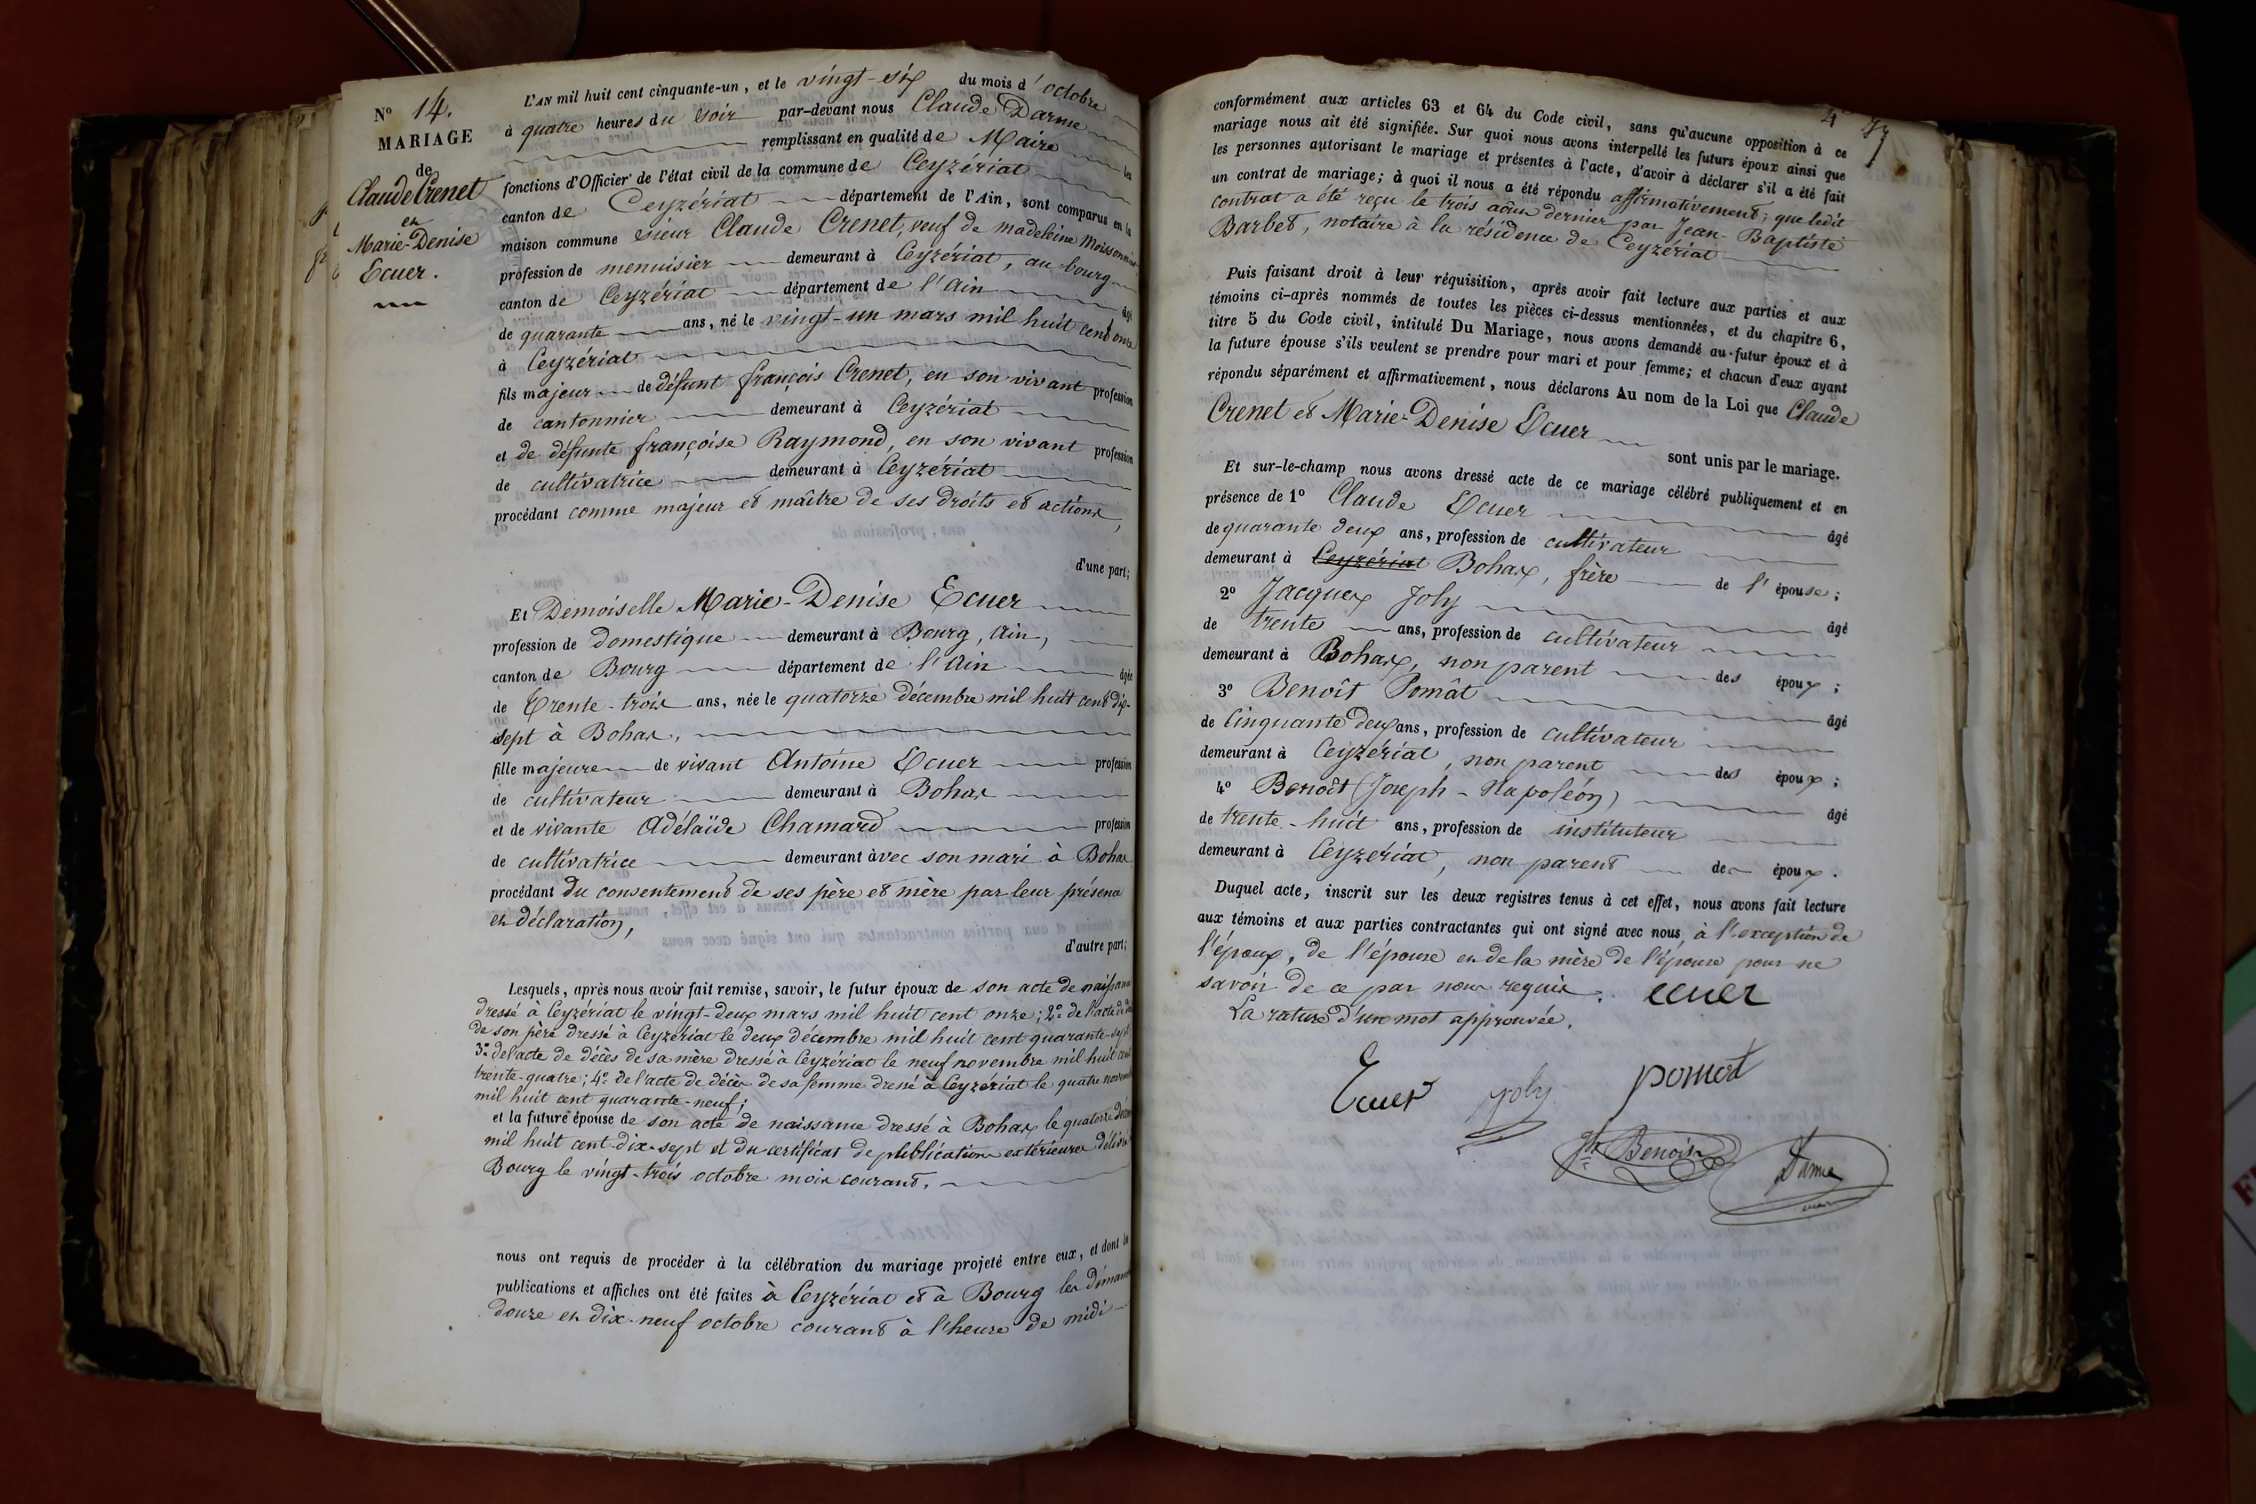 N° 14.
MARIAGE
de
Claude Crenet
et
Marie-Denise
Ecuer.
L'AN mil huit cent cinquante-un, et le vingt-six du mois d'octobre
à quatre heures du soir par-devant nous Claude Darme
remplissant en qualité de Maire les
fonctions d'Officier de l'état civil de la commune de Ceyzériat
canton de Ceyzériat département de l'Ain, sont comparus en la
maison commune sieur Claude Crenet, veuf de madeleine
profession de menuisier demeurant à Ceyzériat, au bourg
canton de Ceyzériat département de l'Ain âgé
de quarante ans, né le vingt-un mars mil huit cent onze
à Ceyzériat
fils majeur de défunt françois Crenet, en son vivant profession
de cantonnier demeurant à Ceyzériat
et de défunte françoise Raymond, en son vivant profession
de cultivatrice demeurant à Ceyzériat
procédant comme majeur et maître de ses droits et actions,
d'une part;
Et Demoiselle Marie-Denise Ecuer
profession de domestique demeurant à Bourg, Ain,
canton de Bourg département de l'Ain âgée
de Trente-trois ans, née le quatorze décembre mil huit cent dix-
sept à Bohas,
fille majeure de vivant Antoine Ecuer profession
de cultivateur demeurant à Bohas
et de vivante Adélaïde Chamard profession
de cultivatrice demeurant avec son mari à Bohas
procédant du consentement de ses père et mère par leur présence
et déclaration,
d'autre part;
Lesquels, après nous avoir fait remise, savoir, le futur époux de son acte de naissance
dressé à Ceyzériat le vingt-deux mars mil huit cent onze; 2° de l'acte de
de son père dressé à Ceyzériat le deux décembre mil huit cent quarante-sept
3° de l'acte de décès de sa mère dressé à Ceyzériat le neuf novembre mil huit cent
trente-quatre; 4° de l'acte de décès de sa femme dressé à Ceyzériat le quatre
mil huit cent quarante-neuf;
et la future épouse de son acte de naissance dressé à Bohas le quatorze
mil huit cent dix-sept et du certificat de publications extérieures délivré
Bourg le vingt-trois octobre mois courant.
nous ont requis de procéder à la célébration du mariage projeté entre eux, et dont les
publications et affiches ont été faites à Ceyzériat et à Bourg les
douze et dix-neuf octobre courant à l'heure de midi
conformément aux articles 63 et 64 du Code civil, sans qu'aucune opposition à ce
mariage nous ait été signifiée. Sur quoi nous avons interpellé les futurs époux ainsi que
les personnes autorisant le mariage et présentes à l'acte, d'avoir à déclarer s'il a été fait
un contrat de mariage; à quoi il nous a été répondu affirmativement; que ledit
contrat a été reçu le trois août dernier par Jean-Baptiste
Barbet, notaire à la résidence de Ceyzériat
Puis faisant droit à leur réquisition, après avoir fait lecture aux parties et aux
témoins ci-après nommés de toutes les pièces ci-dessus mentionnées, et du chapitre 6,
titre 5 du Code civil, intitulé Du Mariage, nous avons demandé au futur époux et à
la future épouse s'ils veulent se prendre pour mari et pour femme; et chacun d'eux ayant
répondu séparément et affirmativement, nous déclarons Au nom de la Loi que Claude
Crenet et Marie-Denise Ecuer
sont unis par le mariage.
Et sur-le-champ nous avons dressé acte de ce mariage célébré publiquement et en
présence de 1° Claude Ecuer âgé
de quarante deux ans, profession de cultivateur
demeurant à Ceyzériat Bohas, frère de l'épouse;
2° Jacques Joly âgé
de trente ans, profession de cultivateur
demeurant à Bohas, non parent des époux;
3° Benoît Pomât âgé
de Cinquante deux ans, profession de cultivateur
demeurant à Ceyzériat, non parent des époux;
4° Benoît (Joseph-Napoléon) âgé
de trente-huit ans, profession de instituteur
demeurant à Ceyzériat, non parent des époux.
Duquel acte, inscrit sur les deux registres tenus à cet effet, nous avons fait lecture
aux témoins et aux parties contractantes qui ont signé avec nous, à l'exception de
l'époux, de l'épouse et de la mère de l'épouse pour ne
savoir de ce par nous requis. ecuer
La rature d'un mot approuvée.
Ecuer Joly pomat
Jh Benoit Darme